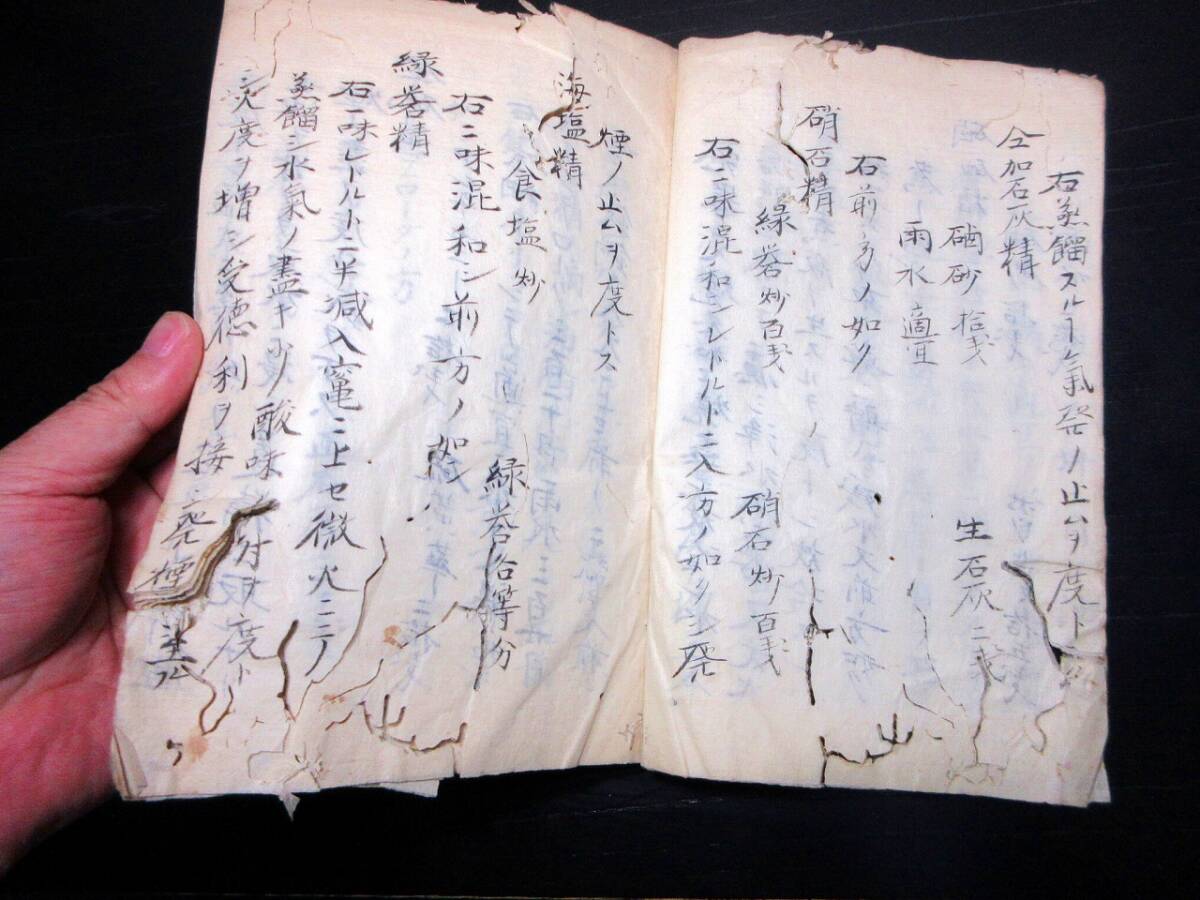 右蒸餾スルヿ氣発ノ止ムヲ度ト
仝加石灰精
硇砂 拾戔 生石灰 二
雨水 適宜
右前方ノ如ク
硝石精
緑礬炒百戔 硝石炒百戔
右二味混和シレトルトニ入方ノ如ク
煙ノ止ムヲ度トス
海塩精
食塩炒 緑礬各等分
右二味混和シ前方ノ如シ
緑礬精
右二味レトルトニ半減入竃ニ上セ微火ニテ
蒸餾シ水氣ノ盡キ少 酸味 ヲ度ト
シ火度ヲ増シ受德利ヲ接